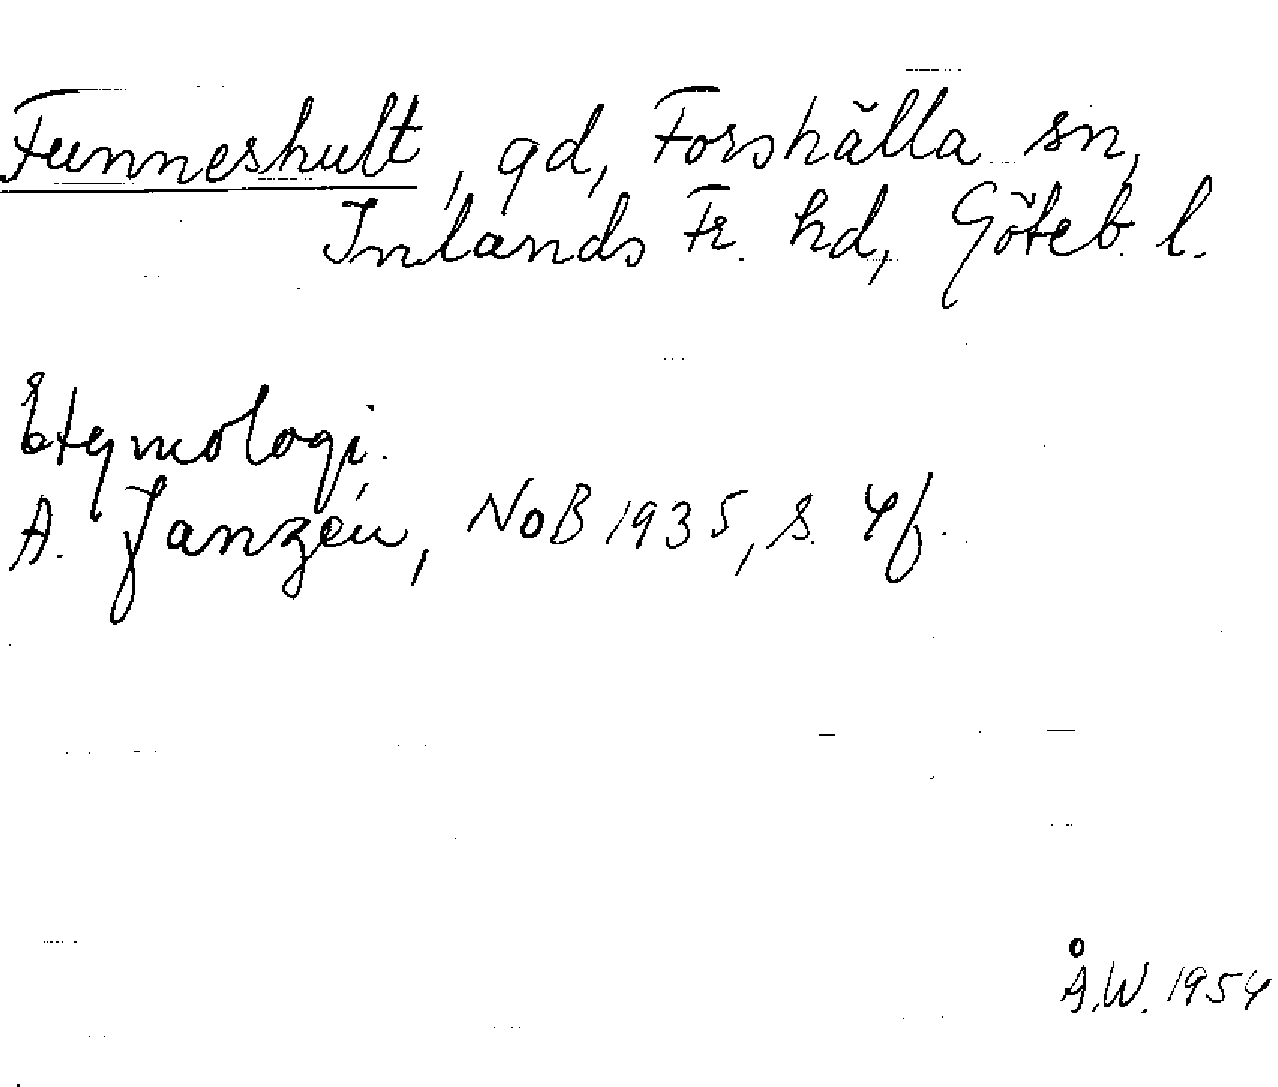 Funneshult, gd, Forshälla sn,
Inlands Fr. hd, Göteb. l.
Etymologi.
A. Janzén, NoB 1935, s. 4f.
Å.W. 1954